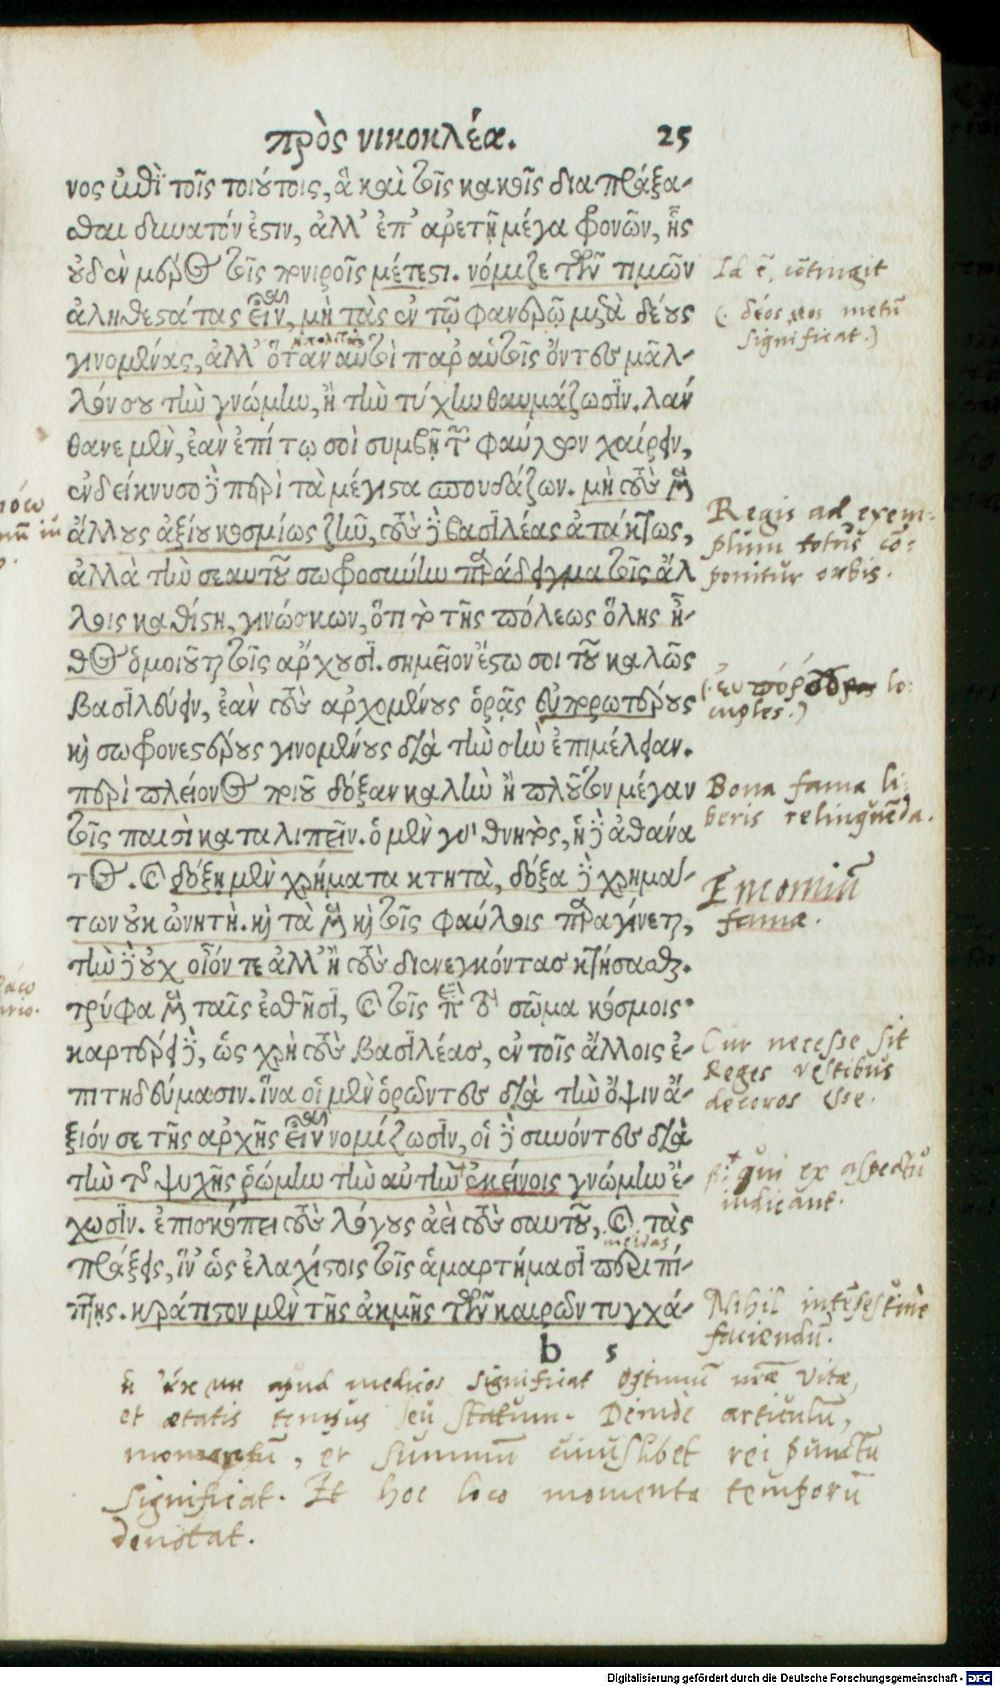 πρὸς νικοκλέα. 25
νος ἐπὶ τοῖς τοιούτοις, ἃ καὶ τοῖς κακοῖς διαπράξα-
σθαι δυνατόν ἐστιν, ἀλλ' ἐπ' ἀρετῇ μέγα φρονῶν, ἧς
οὐδὲν μέρος τοῖς πονηροῖς μέτεστι. νόμιζε τῶν τιμῶν
ἀληθεστάτας εἶναι, μὴ τὰς ἐν τῷ φανερῷ μετὰ δέους
γινομένας, ἀλλ' ὅταν αὐτοὶ παρ' αὑτοῖς ὄντες μᾶλ-
λον σου τὴν γνώμην, ἢ τὴν τύχην θαυμάζωσιν. λάν
θανε μὲν, ἐὰν ἐπί τῳ σοὶ συμβῇ τῶν φαύλων χαίρειν,
ἐνδείκνυσο δὲ περὶ τὰ μέγιστα σπουδάζων. μὴ τοὺς μὲν
ἄλλους ἀξίου κοσμίως ζῆν, τοὺς δὲ βασιλέας ἀτάκτως,
ἀλλὰ τὴν σεαυτοῦ σωφροσύνην παράδειγμα τοῖς ἄλ
λοις καθίστη, γινώσκων, ὅτι τὸ τῆς πόλεως ὅλης ἦ-
θος ὁμοιοῦται τοῖς ἄρχουσι. σημεῖον ἔστω σοι τοῦ καλῶς
βασιλεύειν, ἐὰν τοὺς ἀρχομένους ὁρᾷς εὐπορωτέρους
καὶ σωφρονεστέρους γινομένους διὰ τὴν σὴν ἐπιμέλειαν.
περὶ πλέιονος ποιοῦ δόξαν καλὴν ἢ πλοῦτον μέγαν
τοῖς παισὶ καταλιπεῖν. ὁ μὲν γὰρ θνητὸς, ἡ δὲ ἀθάνα
τος. καὶ δόξῃ μὲν χρήματα κτητὰ, δόξα δὲ χρημά-
των οὐκ ὠνητὴ. καὶ τὰ μὲν καὶ τοῖς φαύλοις παραγίνεται,
τὴν δὲ οὐχ οἷόν τε ἀλλ' ἢ τοὺς διενεγκόντας κτήσασθαι.
τρύφα μὲν ταῖς ἐσθῆσι, καὶ τοῖς περὶ τὸ σῶμα κόσμοις·
καρτέρει δὲ, ὡς χρὴ τοὺς βασιλέας, ἐν τοῖς ἄλλοις ἐ-
πιτηδεύμασιν. ἵνα οἱ μὲν ὁρῶντες διὰ τὴν ὄψιν ἄ-
ξιόν σε τῆς ἀρχῆς εἶναι νομίζωσιν, οἱ δὲ συνόντες διὰ
τὴν τῆς ψυχῆς ῥώμην τὴν αὐτὴν ἐκείνοις γνώμην ἔ-
χωσιν. ἐπισκόπει τοὺς λόγους ἀεὶ τοὺς σαυτοῦ, καὶ τὰς
πράξεις, ἵν' ὡς ἐλαχίστοις τοῖς ἁμαρτήμασι περιπί-
πτῃς. κράτιστον μὲν τῆς ἀκμῆς τῶν καιρῶν τυγχά-
b 5
Id ē, cōtingit
(· δέος, metū
significat.)
Regis ad exem-
plum totus cō-
ponitur orbis.
lo-
cuples.)
Bona fama li-
beris relinquēda.
Encomiū
famæ.
Cur necesse sit
Reges vestibus
decoros esse.
qui ex aspectu
iudicant.
Nihil
faciendū.
apud medicos significat vitæ,
et ætatis tempus seu statum. Deinde articulū,
momentū, et summū cuiuslibet rei punctū
significat. Et hoc loco momenta temporū
denotat.
Digitalisierung gefördert durch die Deutsche Forschungsgemeinschaft - DFG